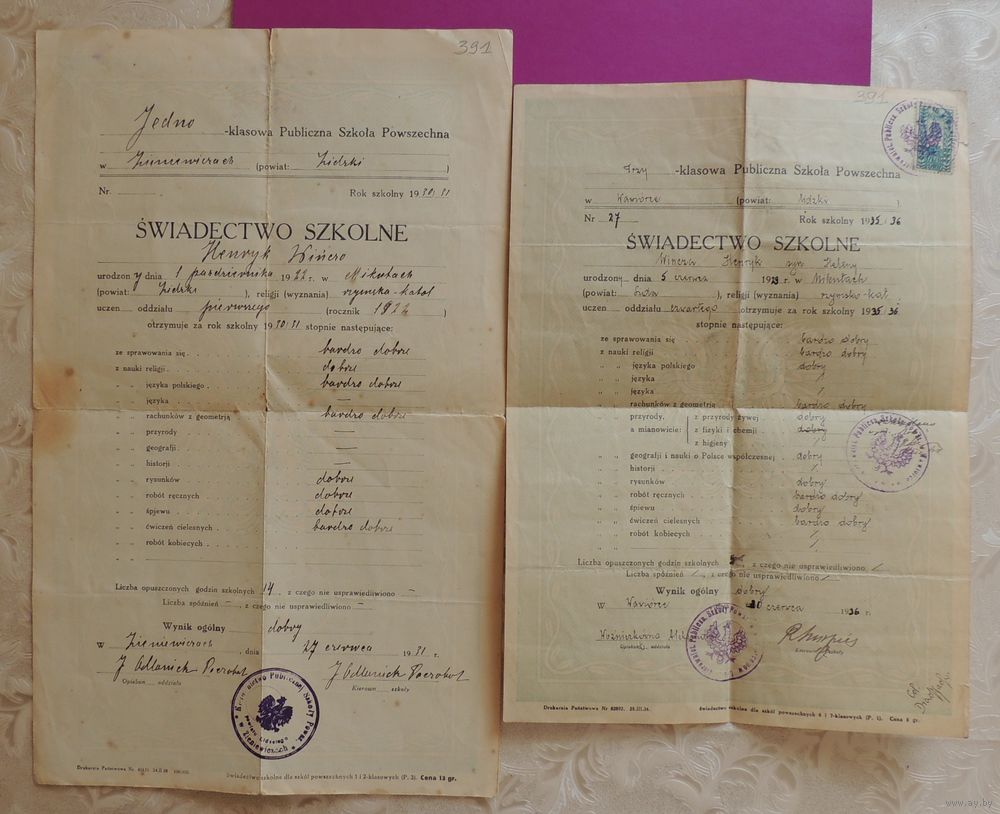 391
Jedno -klasowa Publiczna Szkoła Powszechna
w Zieniewiczach (powiat: Lidzki )
Nr Rok szkolny 1930/31
ŚWIADECTWO SZKOLNE
Henryk Wińcro
urodzony dnia 1 października 1922 r. w Mikutach
(powiat: Lidzki ), religii (wyznania) rzymsko-katol
uczeń oddziału pierwszego (rocznik 1922 )
otrzymuje za rok szkolny 1930/31 stopnie następujące:
ze sprawowania się bardzo dobrze
z nauki religii dobrze
„ „ języka polskiego bardzo dobrze
„ „ języka —
„ „ rachunków z geometrją bardzo dobrze
„ „ przyrody —
„ „ geografji —
„ „ historji —
„ „ rysunków dobrze
„ „ robót ręcznych dobrze
„ „ śpiewu dobrze
„ „ ćwiczeń cielesnych bardzo dobrze
„ „ robót kobiecych
Liczba opuszczonych godzin szkolnych 14, z czego nie usprawiedliwiono —
Liczba spóźnień —, z czego nie usprawiedliwiono —
Wynik ogólny dobry
w Zieniewiczach, dnia 27 czerwca 1931 r.
J Odlanick Poczobut J Odlanick Poczobut
Opiekun oddziału Kierown szkoły
Kierownictwo Publicznej Szkoły Powsz.
Powiatu Lidzkiego
w Zieniewiczach
Drukarnia Państwowa Nr.
Świadectwo szkolne dla szkół powszechnych 1 i 2-klasowych (P. 3). Cena 13 gr.
391
Trzy -klasowa Publiczna Szkoła Powszechna
w Wawiorce (powiat: Lidzki ).
Nr 27 Rok szkolny 1935/36
ŚWIADECTWO SZKOLNE
Wincza Henryk syn Heleny
urodzony dnia 5 czerwca 1923 r. w Mikutach
(powiat: Lida ), religii (wyznania) rzymsko-kat.
uczeń oddziału czwartego otrzymuje za rok szkolny 1935/36
stopnie następujące:
ze sprawowania się bardzo dobry
z nauki religii bardzo dobry
„ „ języka polskiego dobry
„ „ języka /
„ „ języka /
„ „ rachunków z geometrją bardzo dobry
„ „ przyrody, z przyrody żywej dobry
a mianowicie: z fizyki i chemji dobry
z higjeny
„ „ geografji i nauki o Polsce współczesnej dobry
„ „ historji /
„ „ rysunków dobry
„ „ robót ręcznych bardzo dobry
„ „ śpiewu dobry
„ „ ćwiczeń cielesnych bardzo dobry
„ „ robót kobiecych /
Liczba opuszczonych godzin szkolnych, z czego nie usprawiedliwiono /
Liczba spóźnień /, z czego nie usprawiedliwiono /
Wynik ogólny dobry
w Wawiorce 20 czerwca 1936 r.
Opiekun oddziału szkoły
Drukarnia Państwowa Nr 62802. 28.III.36. Świadectwo szkolne dla szkół powszechnych 6 i 7-klasowych (P. 1). Cena 6 gr.
www.ay.by